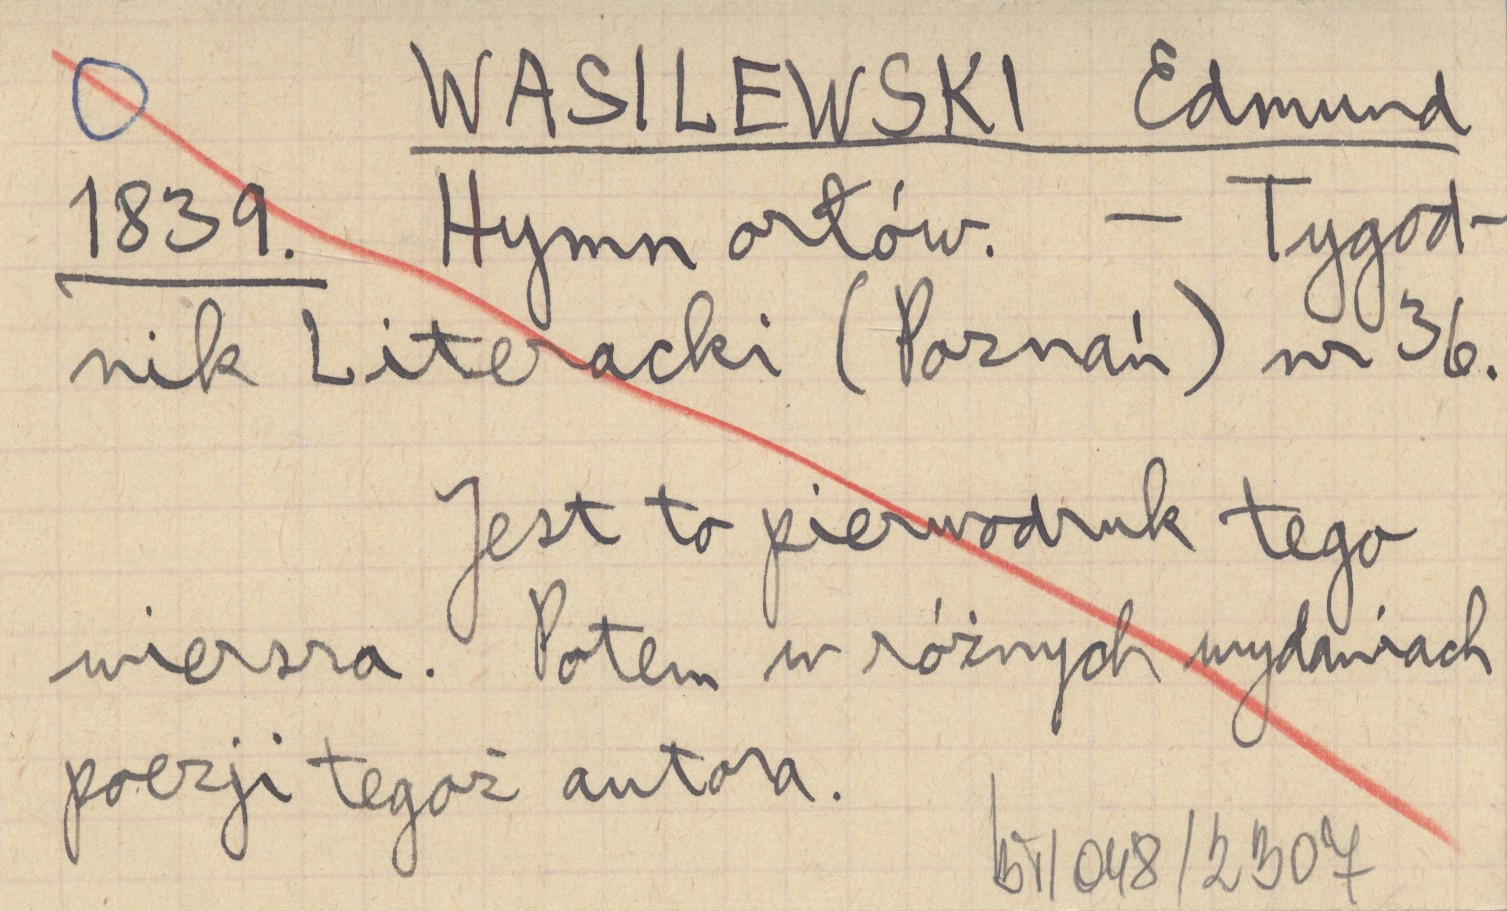 WASILEWSKI Edmund
1839. Hymn orłów. — Tygod-
nik Literacki (Poznań) nr 36.
Jest to pierwodruk tego
wiersza. Potem w różnych wydaniach
poezji tegoż autora.
048/2307